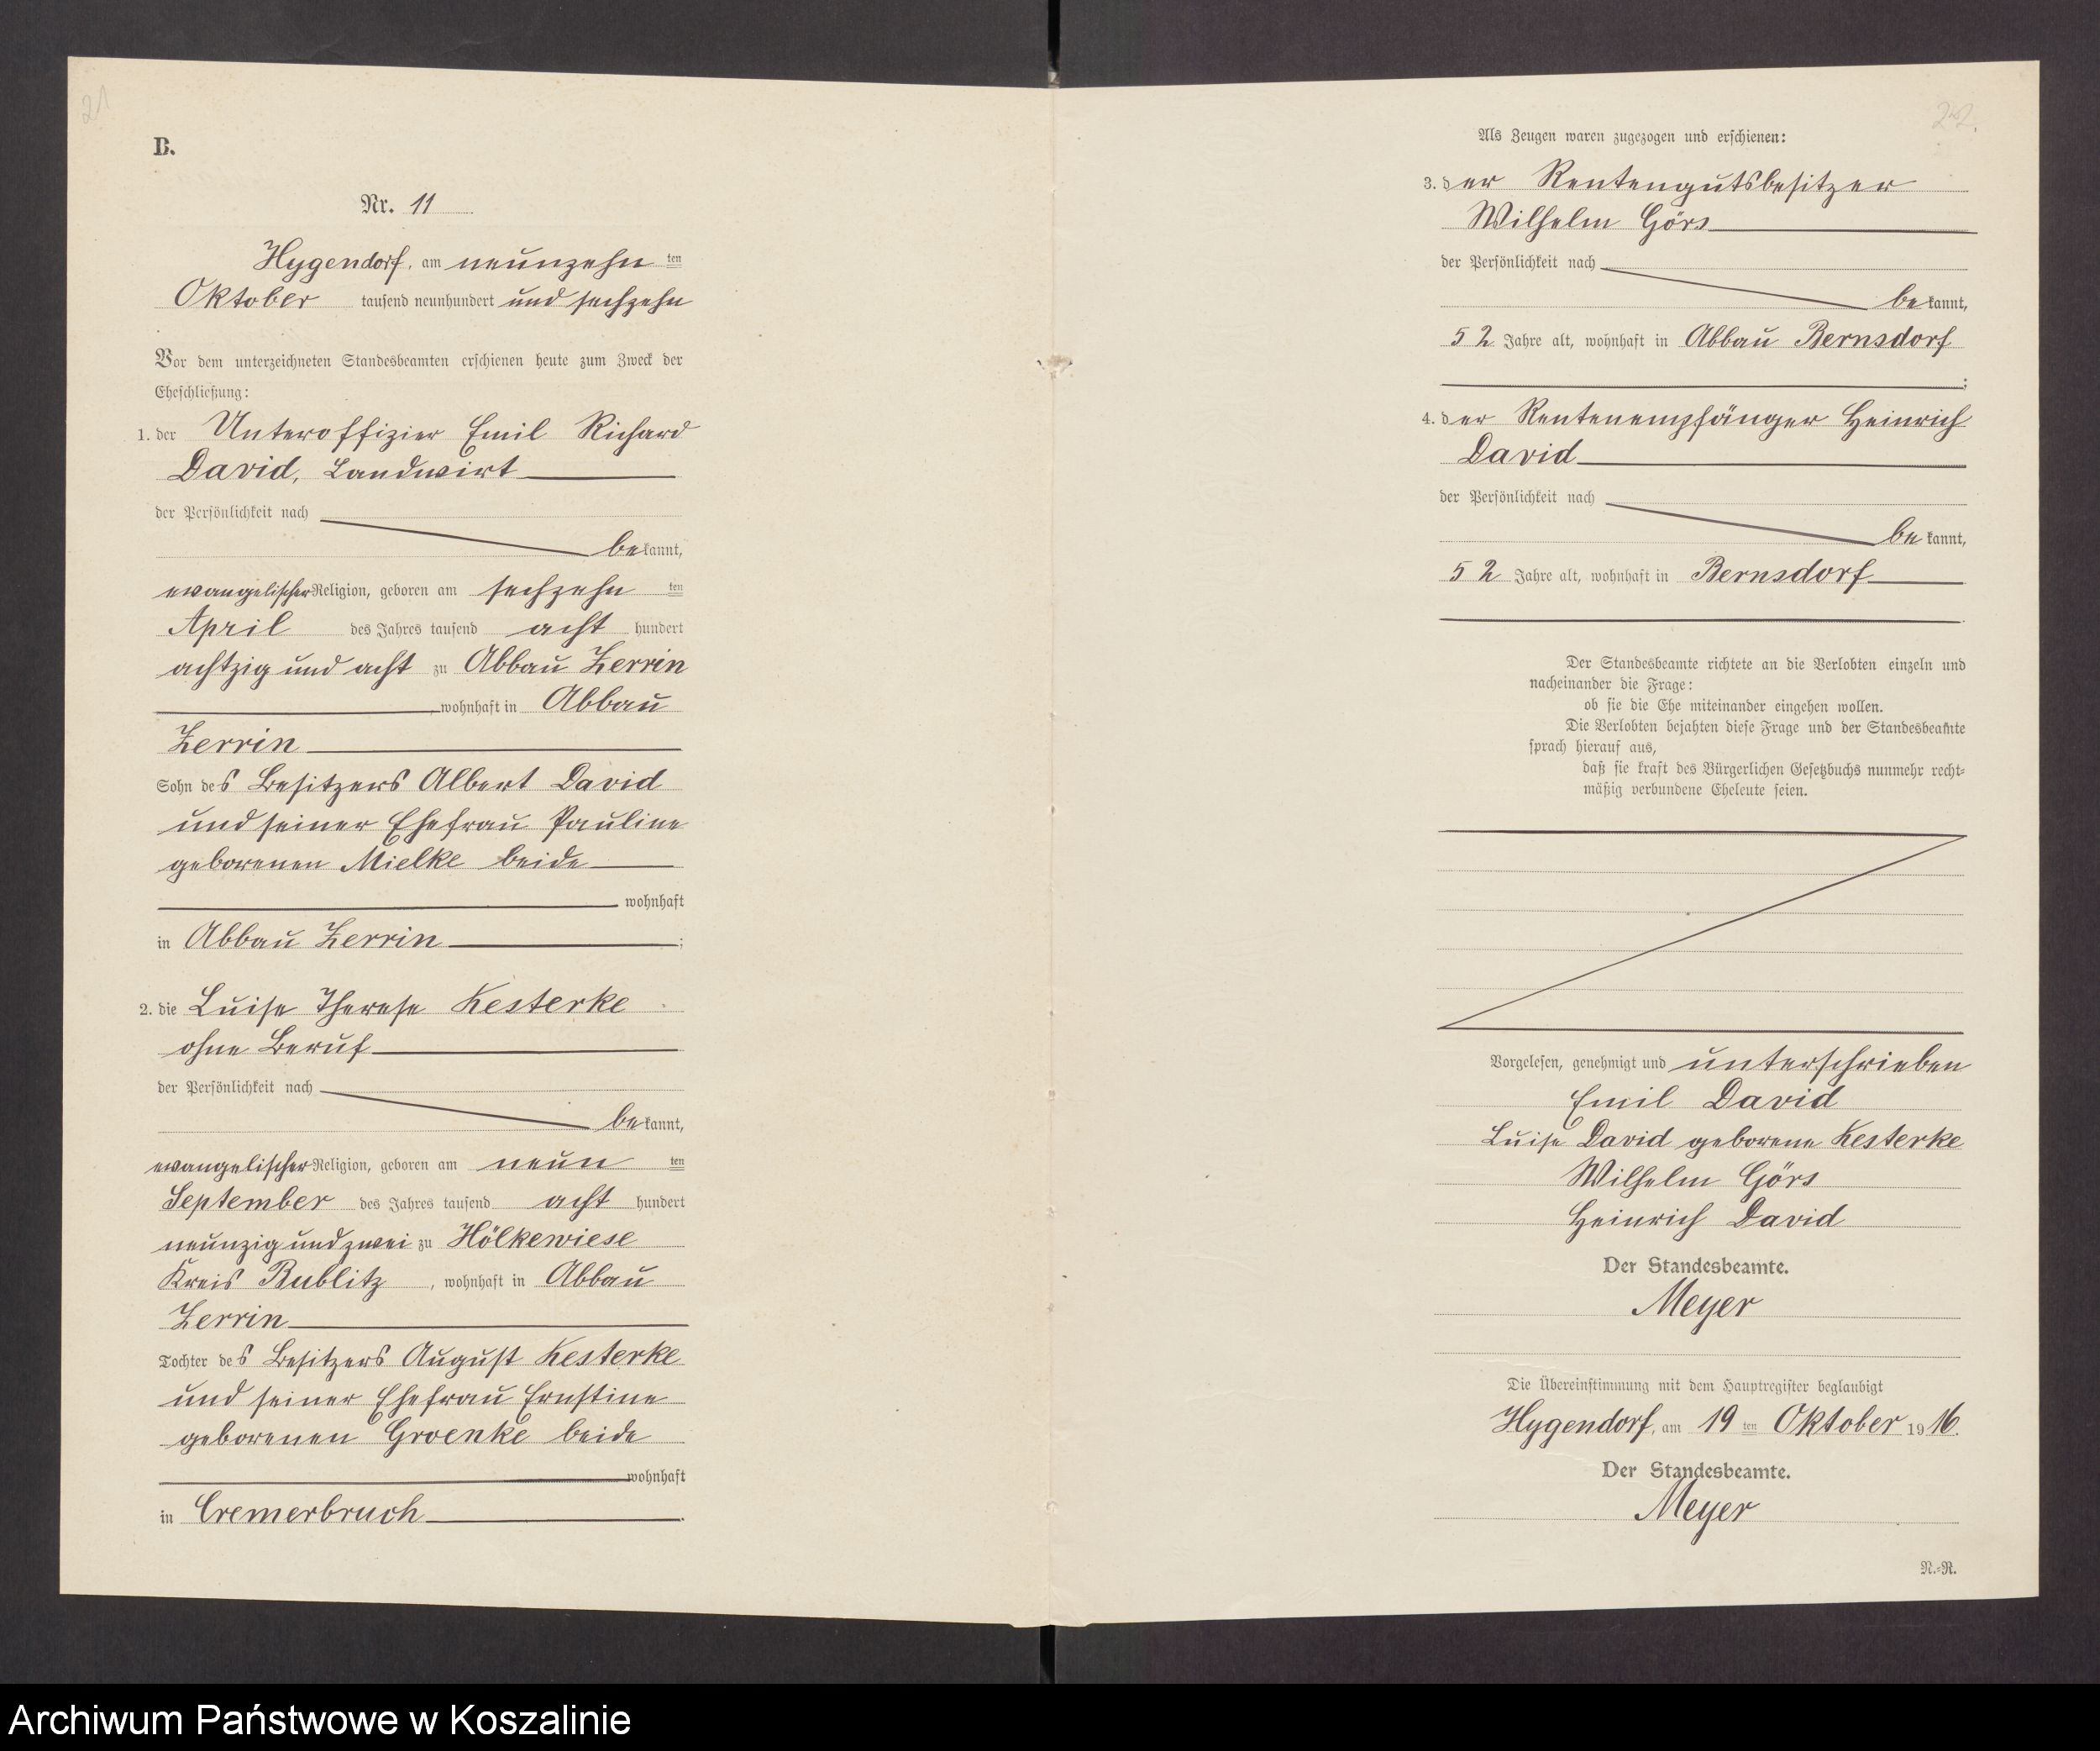 21
B.
Nr. 11
Hygendorf, am neunzehn ten
Oktober tausend neunhundert und sechzehn
Vor dem unterzeichneten Standesbeamten erschienen heute zum Zweck der
Eheschließung:
1. der Unteroffizier Emil Richard
David, Landwirt
der Persönlichkeit nach
bekannt,
evangelischer Religion, geboren am sechzehn ten
April des Jahres tausend acht hundert
achtzig und acht zu Abbau Zerrin
wohnhaft in Abbau
Zerrin
Sohn des Besitzers Albert David
und seiner Ehefrau Pauline
geborenen Mielke beide
wohnhaft
in Abbau Zerrin ;
2. die Luise Therese Kesterke
ohne Beruf
der Persönlichkeit nach
bekannt,
evangelischer Religion, geboren am neun ten
September des Jahres tausend acht hundert
neunzig und zwei zu Hölkewiese
Kreis Bublitz , wohnhaft in Abbau
Zerrin
Tochter des Besitzers August Kesterke
und seiner Ehefrau Ernstine
geborenen Groenke beide
wohnhaft
in Cremerbruch .
22.
Als Zeugen waren zugezogen und erschienen:
3. der Rentengutsbesitzer
Wilhelm Görs
der Persönlichkeit nach
bekannt,
52 Jahre alt, wohnhaft in Abbau Bernsdorf
;
4. der Rentenempfänger Heinrich
David
der Persönlichkeit nach
bekannt,
52 Jahre alt, wohnhaft in Bernsdorf
.
Der Standesbeamte richtete an die Verlobten einzeln und
nacheinander die Frage:
ob sie die Ehe miteinander eingehen wollen.
Die Verlobten bejahten diese Frage und der Standesbeamte
sprach hierauf aus,
daß sie kraft des Bürgerlichen Gesetzbuchs nunmehr recht-
mäßig verbundene Eheleute seien.
Vorgelesen, genehmigt und unterschrieben
Emil David
Luise David geborene Kesterke
Wilhelm Görs
Heinrich David
Der Standesbeamte.
Meyer
Die Übereinstimmung mit dem Hauptregister beglaubigt
Hygendorf, am 19 ten Oktober 1916.
Der Standesbeamte.
Meyer
N.-R.
Archiwum Państwowe w Koszalinie